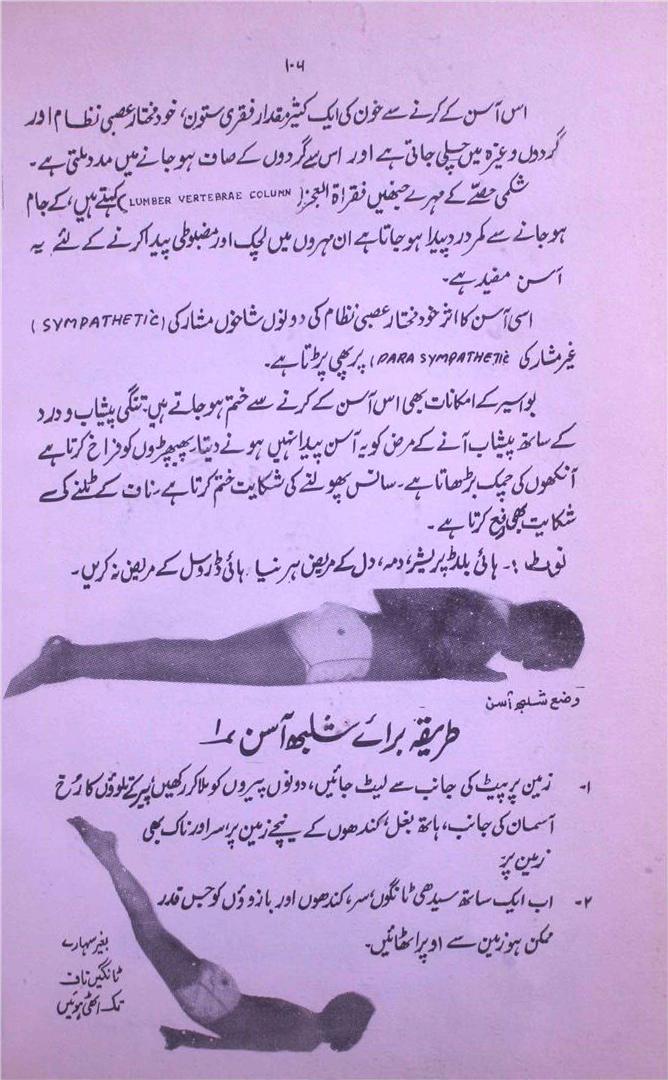 ۱۰۵
اس آسن کے کرنے سے خون کی ایک کثیر مقدار فقری ستون، خود مختار عصبی نظام اور
گردوں وغیرہ میں چلی جاتی ہے اور اس سے گردوں کے صاف ہو جانے میں مدد ملتی ہے۔
شکمی حصّے کے مہرے جنھیں فقراۃ العجز (LUMBER VERTEBRAE COLUMN) کہتے ہیں، کے جام
ہو جانے سے کمر درد پیدا ہو جاتا ہے ان مہروں میں لچک اور مضبوطی پیدا کرنے کے لئے یہ
آسن مفید ہے۔
اسی آسن کا اثر خود مختار عصبی نظام کی دونوں شاخوں مشارکی (SYMPATHETIC)
غیر مشارکی (PARA SYMPATHETIC) پر بھی پڑتا ہے۔
بواسیر کے امکانات بھی اس آسن کے کرنے سے ختم ہو جاتے ہیں۔ تنگی پیشاب و درد
کے ساتھ پیشاب آنے کے مرض کو یہ آسن پیدا نہیں ہونے دیتا۔ پھیپھڑوں کو فراخ کرتا ہے
آنکھوں کی چمک بڑھاتا ہے۔ سانس پھولنے کی شکایت ختم کرتا ہے۔ ناف کے ٹلنے کی سے
شکایت بھی رفع کرتا ہے۔
نوٹ :۔ ہائی بلڈ پریشر، دمہ، دل کے مریض ہرنیا ہائی ڈروسل کے مریض نہ کریں۔
وضع شلبھ آسن
طریقہ برائے شلبھ آسن ۱
۱۔ زمین پر پیٹ کی جانب سے لیٹ جائیں، دونوں پیروں کو ملا کر رکھیں، پیر کے تلوؤں کا رُخ
آسمان کی جانب، ہاتھ بغل، کندھوں کے نیچے زمین پر، سر اور ناک بھی
زمین پر
۲۔ اب ایک ساتھ سیدھی ٹانگوں، سر، کندھوں اور بازوؤں کو جس قدر
ممکن ہو زمین سے اوپر اٹھائیں۔
بغیر سہارے
ٹانگیں ناف
تک اٹھی ہوئیں